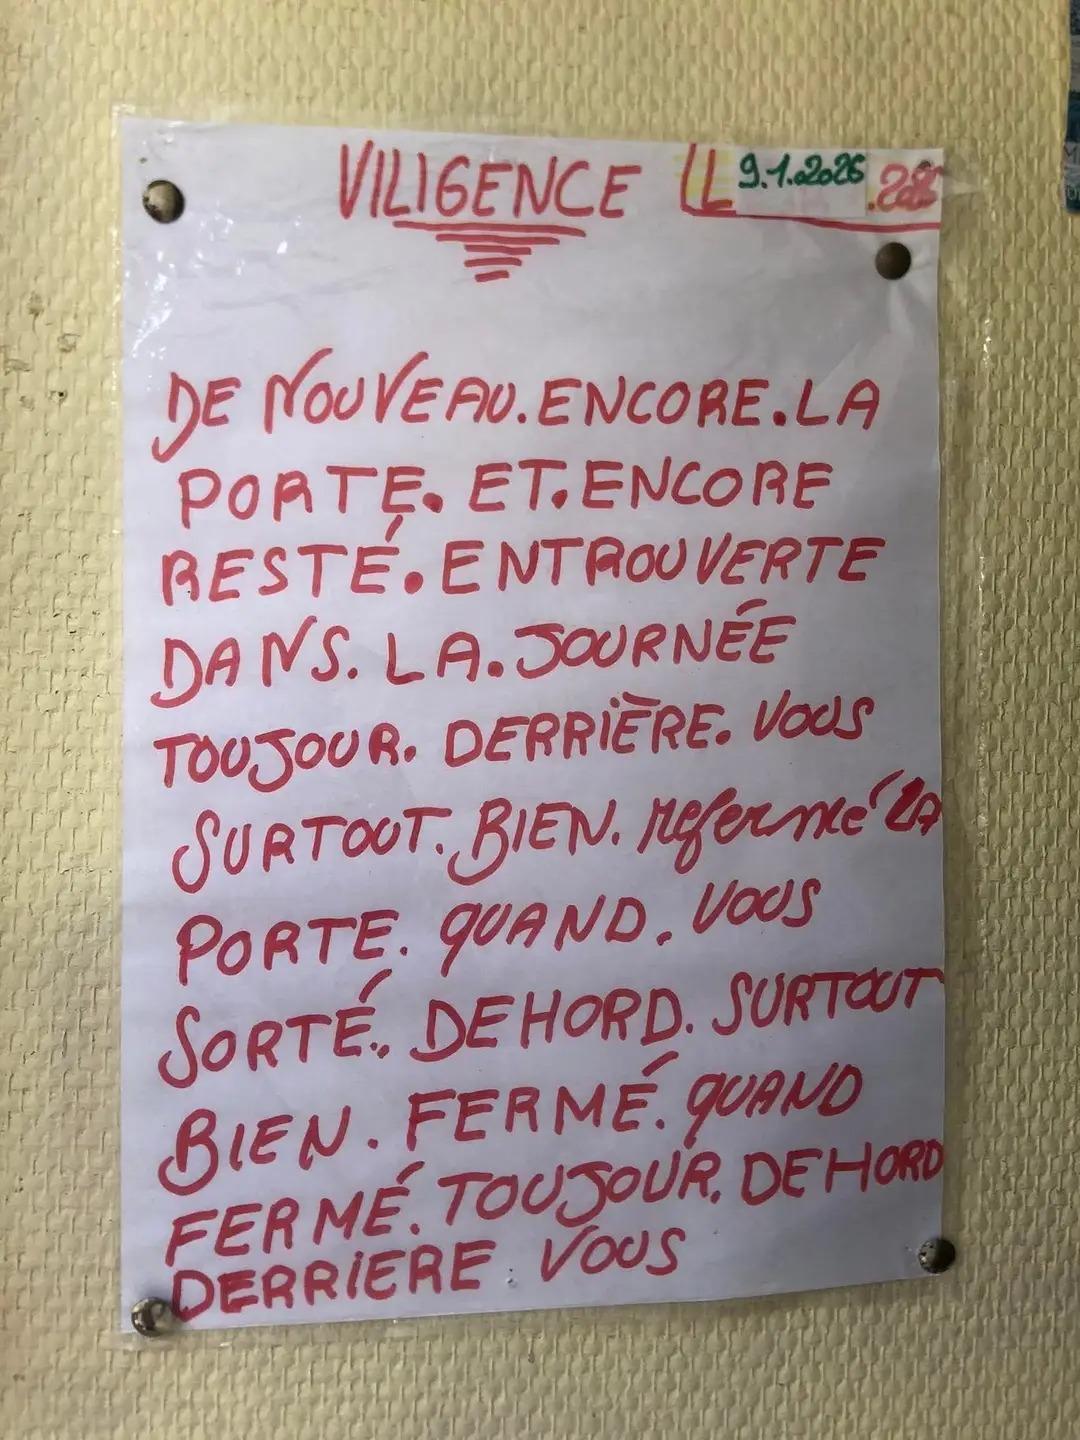 VILIGENCE LL 9.1.2026
DE NOUVEAU. ENCORE. LA
PORTE. ET. ENCORE
RESTÉ. ENTROUVERTE
DANS. LA. JOURNÉE
TOUJOUR. DERRIÈRE. VOUS
SURTOUT. BIEN. refermé LA
PORTE. QUAND. VOUS
SORTÉ. DEHORD. SURTOUT
BIEN. FERMÉ. QUAND
FERMÉ. TOUJOUR. DEHORD
DERRIERE VOUS